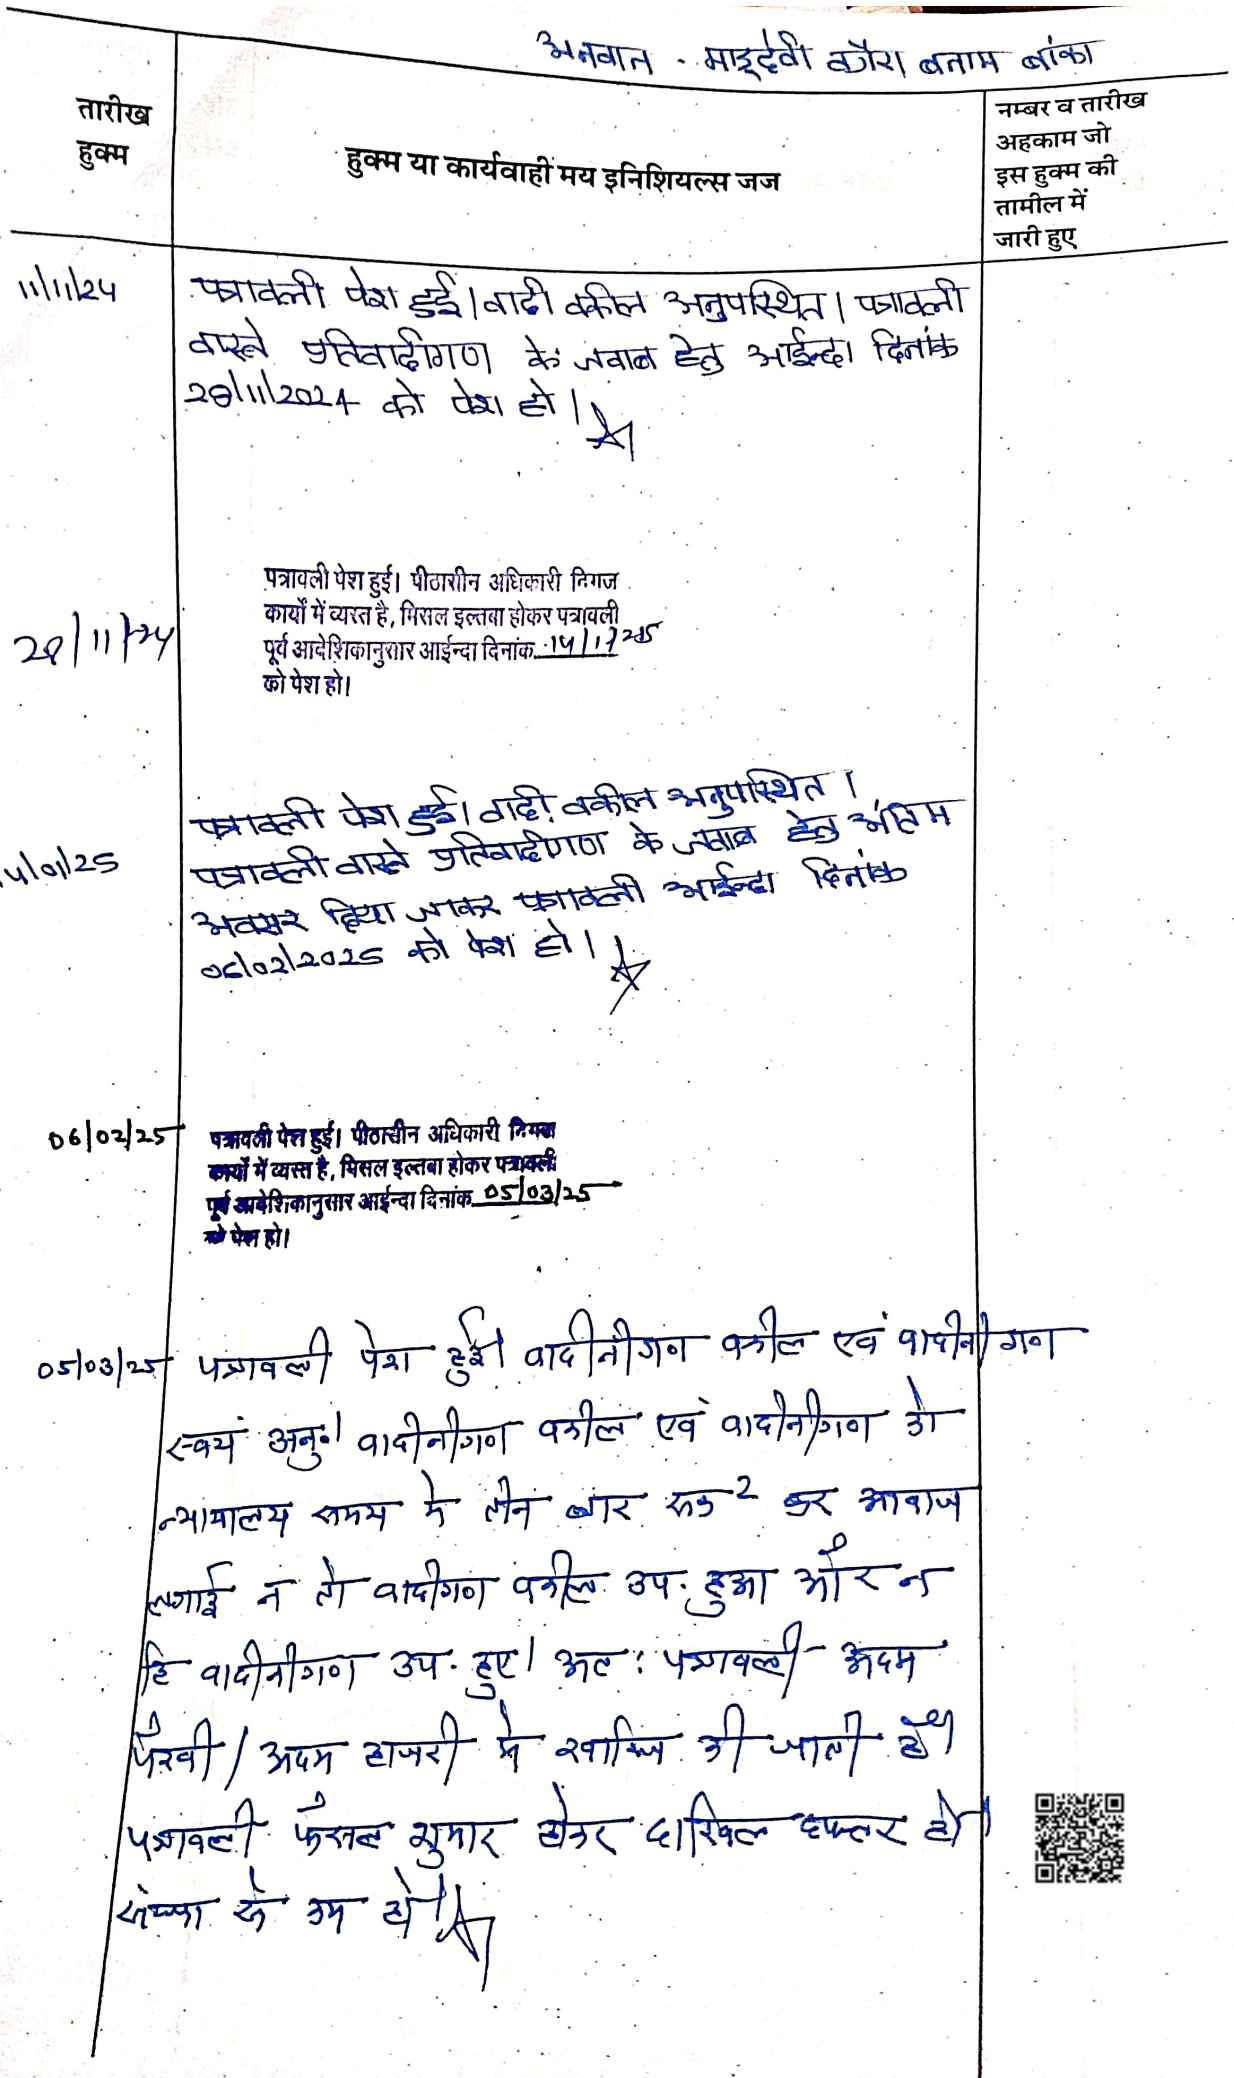 अनवान - माइदेवी वगैरा बनाम बांका
तारीख
हुक्म
हुक्म या कार्यवाही मय इनिशियल्स जज
नम्बर व तारीख
अहकाम जो
इस हुक्म की
तामील में
जारी हुए
11/11/24
पत्रावली पेश हुई। वादी वकील अनुपस्थित। पत्रावली
वास्ते प्रतिवादीगण के जवाब हेतु आईन्दा दिनांक
28/11/2024 को पेश हो।
पत्रावली पेश हुई। पीठासीन अधिकारी निगज
कार्यों में व्यस्त है, मिसल इल्तबा होकर पत्रावली
28/11/24
पूर्व आदेशिकानुसार आईन्दा दिनांक 14/1/25
को पेश हो।
पत्रावली पेश हुई। वादी वकील अनुपस्थित।
14/01/25
पत्रावली वास्ते प्रतिवादीगण के जवाब हेतु अंतिम
अवसर दिया जाकर पत्रावली आईन्दा दिनांक
06/02/2025 को पेश हो।
06/02/25
पत्रावली पेश हुई। पीठासीन अधिकारी
कार्यों में व्यस्त है, मिसल इल्तबा होकर पत्रावली
पूर्व आदेशिकानुसार आईन्दा दिनांक 05/03/25
को पेश हो।
05/03/25
पत्रावली पेश हुई। वादीनीगण वकील एवं वादीनीगण
स्वयं अनु.। वादीनीगण वकील एवं वादीनीगण को
न्यायालय समय मे तीन बार रुक2 कर आवाज
लगाई न तो वादीगण वकील उप. हुआ और न
हि वादीनीगण उप. हुए। अत: पत्रावली अदम
पैरवी / अदम हाजरी मे खारिज की जाती है।
पत्रावली फैसल शुमार होकर दाखिल दफ्तर हो।
संख्या से कम हो।